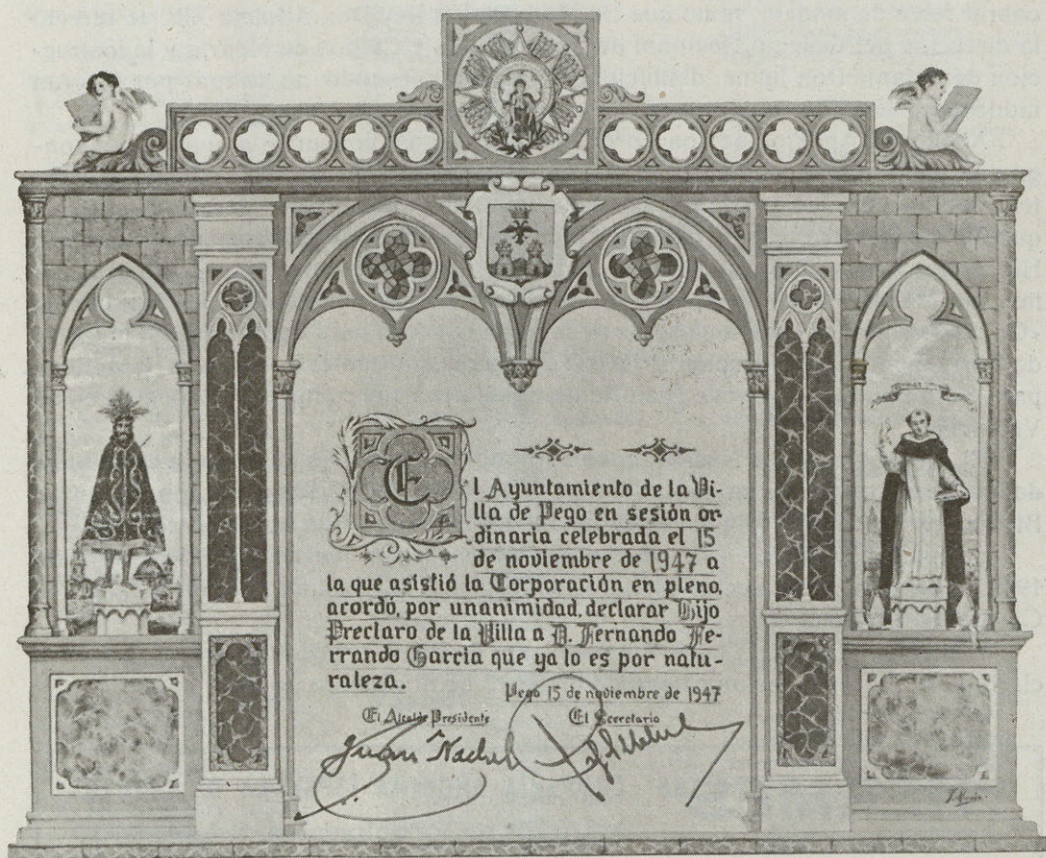 El Ayuntamiento de la Vi-
lla de Pego en sesión or-
dinaria celebrada el 15
de noviembre de 1947 a
la que asistió la Corporación en pleno,
acordó, por unanimidad, declarar Hijo
Preclaro de la Villa a D. Fernando Fe-
rrando García que ya lo es por natu-
raleza.
Pego 15 de noviembre de 1947
El Alcalde Presidente El Secretario
Juan